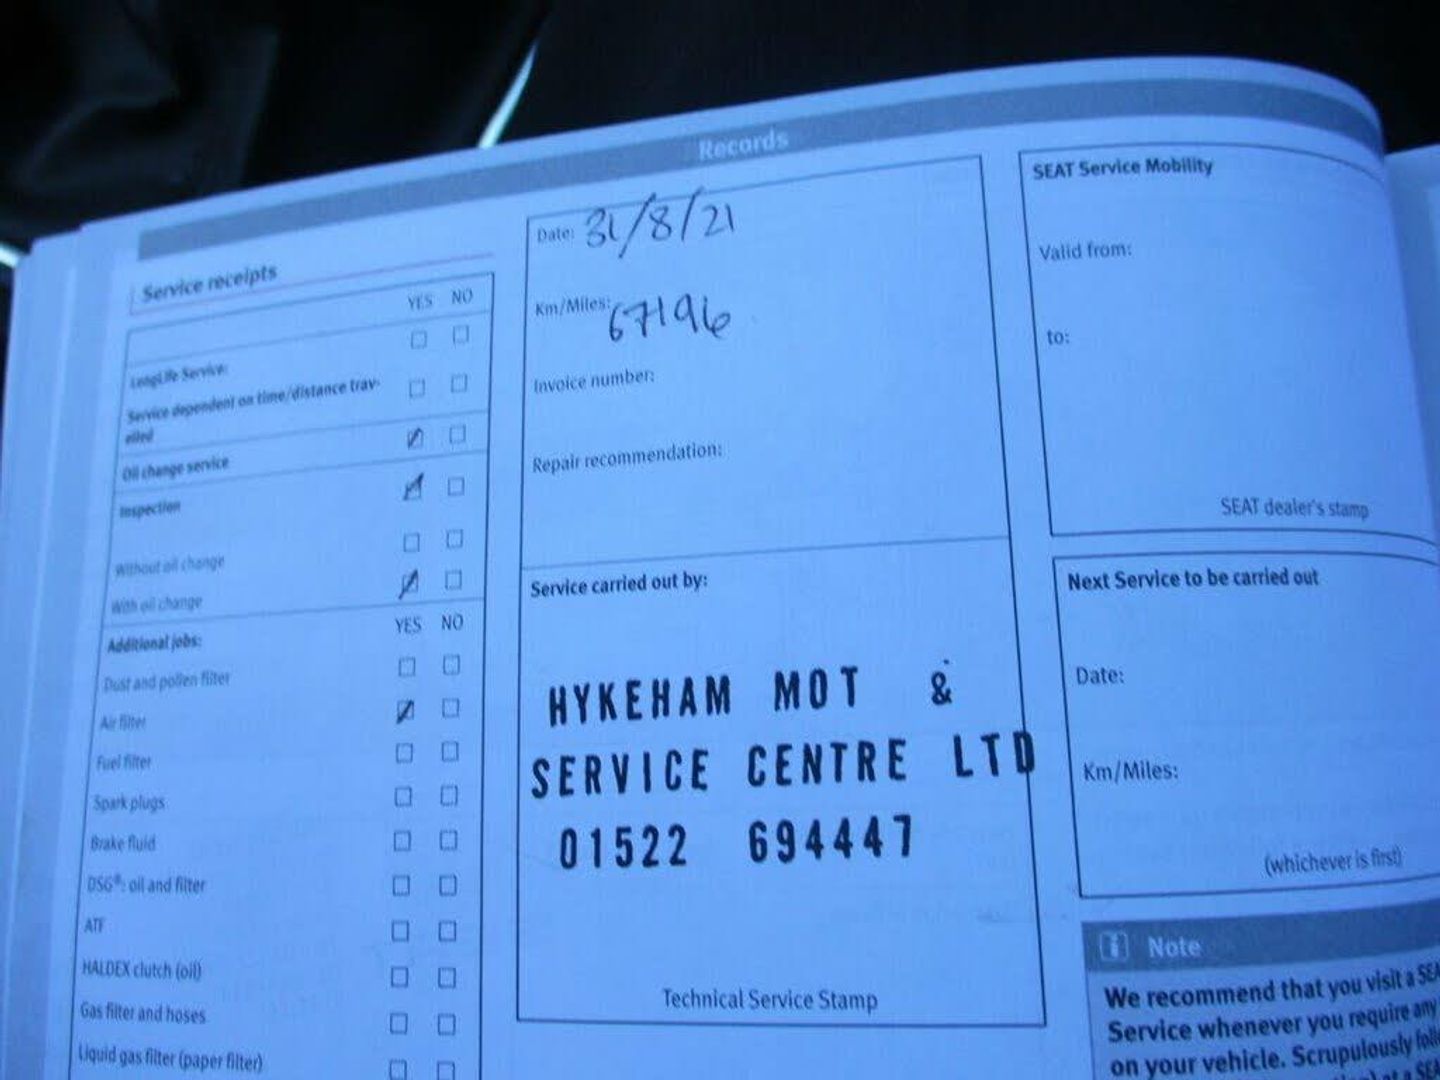 Records
Service receipts
YES NO
LongLife Service:
Service dependent on time/distance trav-
elled
Oil change service
Inspection
Without oil change
With oil change
Additional jobs:
YES NO
Dust and pollen filter
Air filter
Fuel filter
Spark plugs
Brake fluid
DSG®: oil and filter
ATF
HALDEX clutch (oil)
Gas filter and hoses
Liquid gas filter (paper filter)
Date: 31/8/21
Km/Miles: 67196
Invoice number:
Repair recommendation:
Service carried out by:
HYKEHAM MOT &
SERVICE CENTRE LTD
01522 694447
Technical Service Stamp
SEAT Service Mobility
Valid from:
to:
SEAT dealer's stamp
Next Service to be carried out
Date:
Km/Miles:
(whichever is first)
i Note
We recommend that you visit a
Service whenever you require any
on your vehicle. Scrupulously